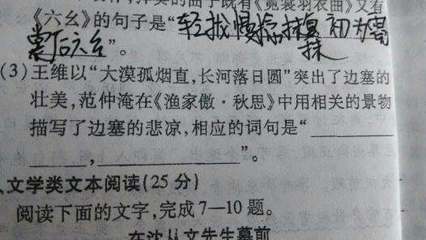 的曲子既有《霓裳羽衣曲》又有
《六幺》的句子是“轻拢慢捻抹复 初为霓
裳后六幺”。
(3)王维以“大漠孤烟直,长河落日圆”突出了边塞的
壮美,范仲淹在《渔家傲·秋思》中用相关的景物
描写了边塞的悲凉,相应的词句是“________
________,____________”。
、文学类文本阅读(25 分)
阅读下面的文字,完成7—10题。
在沈从文先生墓前